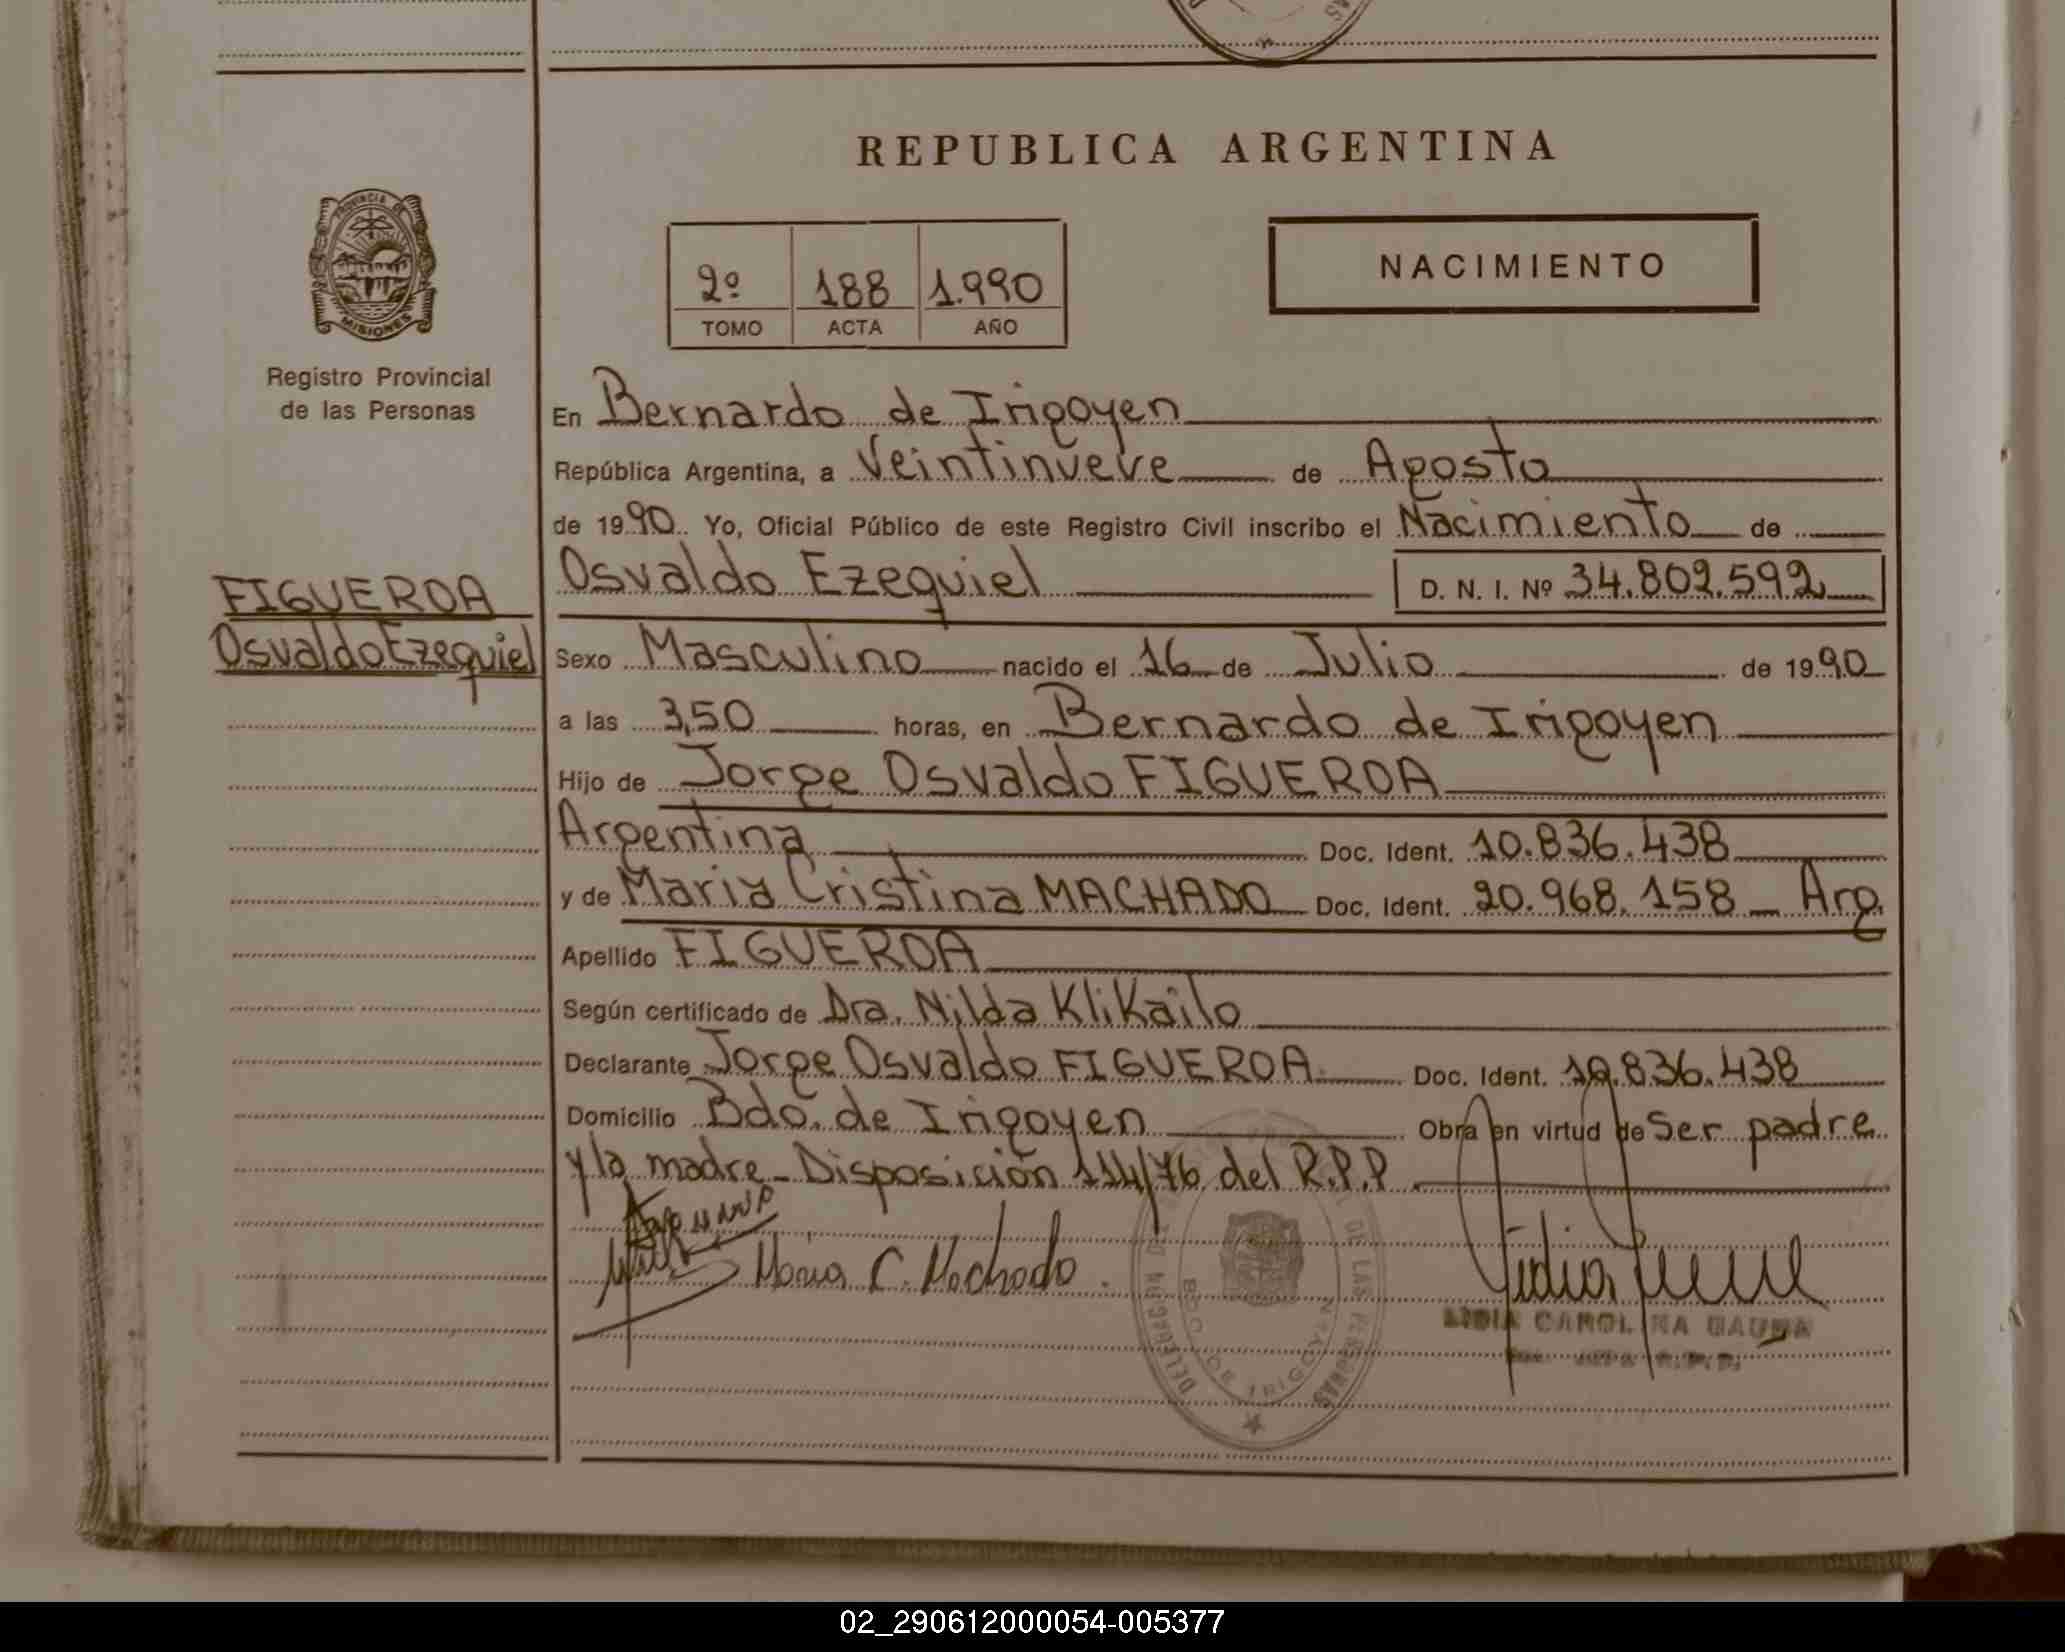 REPUBLICA ARGENTINA
PROVINCIA DE
MISIONES
Registro Provincial
de las Personas
2º 188 1.990
TOMO ACTA AÑO
NACIMIENTO
En Bernardo de Irigoyen
República Argentina, a Veintinueve de Agosto
de 1990. Yo, Oficial Público de este Registro Civil inscribo el Nacimiento de
FIGUEROA
Osvaldo Ezequiel
Osvaldo Ezequiel D. N. I. Nº 34.802.592
Sexo Masculino nacido el 16 de Julio de 1990
a las 3,50 horas, en Bernardo de Irigoyen
Hijo de Jorge Osvaldo FIGUEROA
Argentina Doc. Ident. 10.836.438
y de Maria Cristina MACHADO Doc. Ident. 20.968.158 _ Arg.
Apellido FIGUEROA
Según certificado de Dra. Nilda Klikailo
Declarante Jorge Osvaldo FIGUEROA Doc. Ident. 10.836.438
Domicilio Bdo. de Irigoyen Obra en virtud de Ser padre
y la madre_ Disposición 114/76 del R.P.P
Maria C. Machado.
Lidia
LIDIA CAROLINA
DE LAS PERSONAS
BDO DE IRIGOYEN
02_290612000054-005377